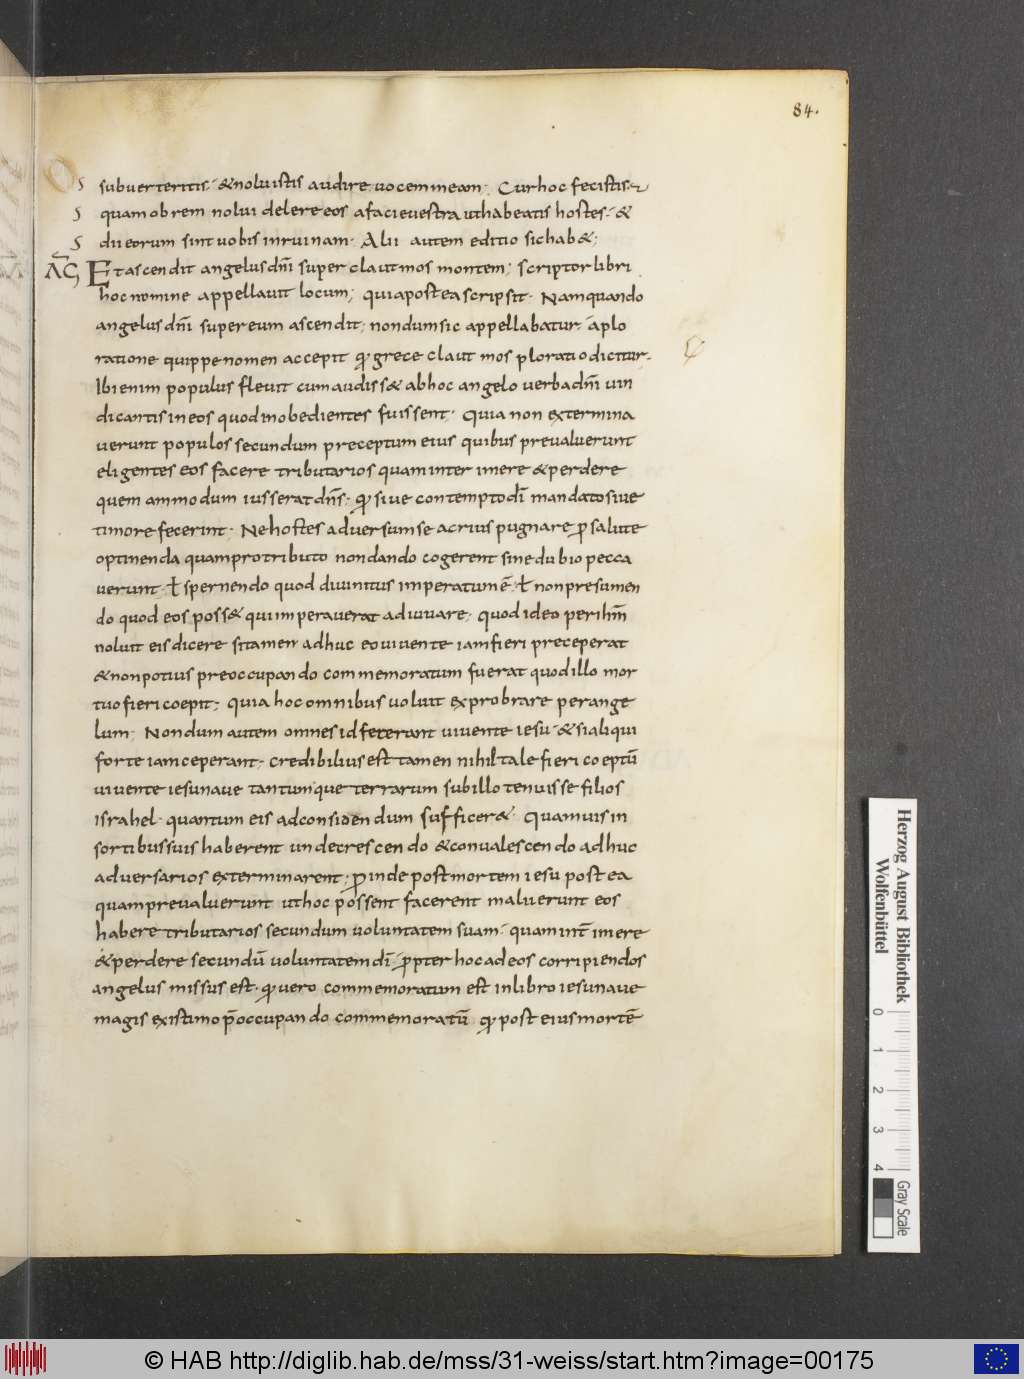 84.
S subuerteritis· &noluistis audire uocem meam· Cur hoc fecistis
S quamobrem nolui delere eos a facie uestra ut habeatis hostes· &
S dii eorum sint uobis in ruinam· Alii autem editio sic hab&;
AG̅ Et ascendit angelus dn̄i super clautmos montem; scriptor libri
hoc nomine appellauit locum; quia postea scripsit· Nam quando
angelus dn̄i super eum ascendit; nondum sic appellabatur· a plo
ratione quippe nomen accepit qđ grece clautmos ploratio dicitur·
Ibi enim populus fleuit cum audiss& ab hoc angelo uerba dn̄i uin
dicantis in eos quod inobedientes fuissent· Quia non extermina
uerunt populos secundum preceptum eius quibus preualuerunt
eligentes eos facere tributarios quam interimere &perdere
quem ammodum iusserat dn̄s· qđ siue contempto dī mandato siue
timore fecerint· Ne hostes aduersum se acrius pugnare p salute
optinenda quam pro tributo non dando cogerent sine dubio pecca
uerunt· ł spernendo quod diuinitus imperatum ē· ł non presumen
do quod eos poss& qui imperauerat adiuuare· quod ideo per ihm̄
noluit eis dicere si tamen adhuc eo uiuente iam fieri preceperat
&non potius preoccupando commemoratum fuerat quod illo mor
tuo fieri coepit; quia hoc omnibus uoluit exprobrare per ange
lum· Nondum autem omnes id fecerant uiuente iesu· & si aliqui
forte iam ceperant· credibilius est tamen nihil tale fieri coeptū
uiuente iesu naue tantumque terrarum sub illo tenuisse filios
israhel· quantum eis ad considendum sufficer&· Quamuis in
sortibus suis haberent unde crescendo &conualescendo adhuc
aduersarios exterminarent; Proinde post mortem iesu postea
quam preualuerunt ut hoc possent facerent maluerunt eos
habere tributarios secundum uoluntatem suam· quam int̄imere
&perdere secundū uoluntatem dī· ppter hoc ad eos corripiendos
angelus missus est· qđ uero commemoratum est in libro iesu naue
magis existimo p̄occupando commemoratū qđ post eius mortē
Herzog August Bibliothek
Wolfenbüttel
0 1 2 3 4
Gray Scale
© HAB http://diglib.hab.de/mss/31-weiss/start.htm?image=00175